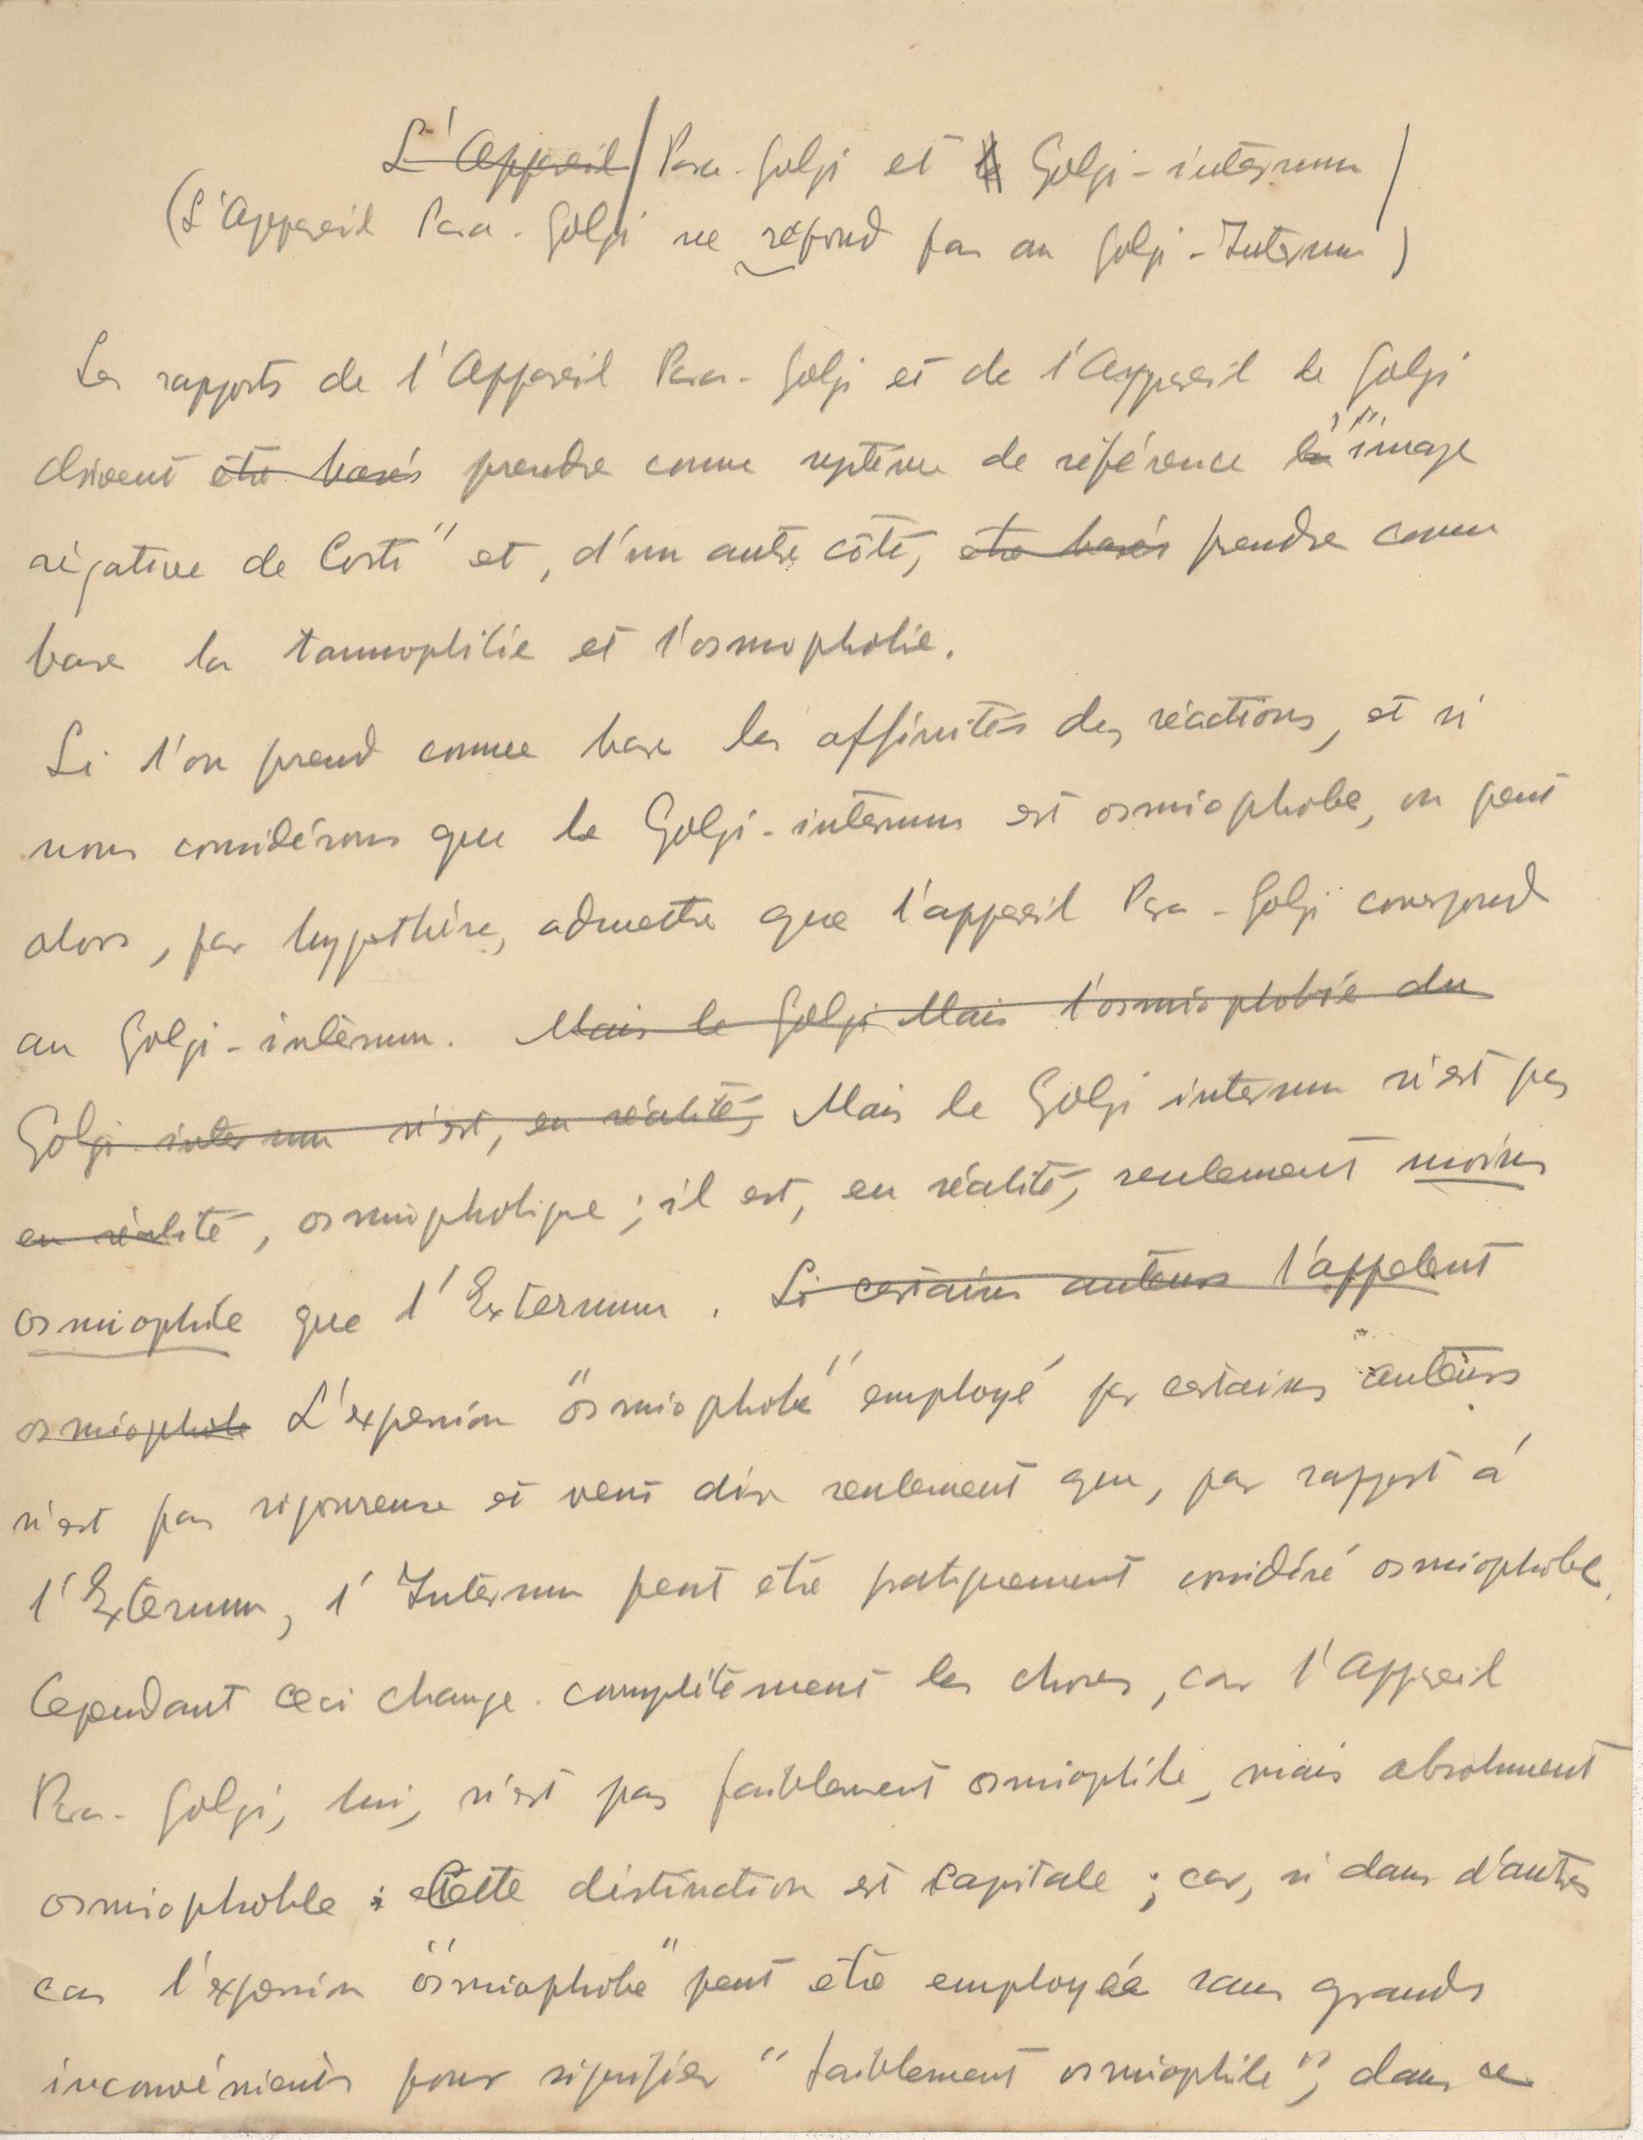 L'Appareil / Para-Golgi et le Golgi-internum /
(L'Appareil Para-Golgi ne répond pas au Golgi-Internum)
Les rapports de l'Appareil Para-Golgi et de l'Appareil de Golgi
doivent être basés prendre comme système de référence la l'"image
négative de Corti" et, d'un autre côté, être basés prendre comme
base la tannophilie et l'osmiophobie.
Si l'on prend comme base les affinités des réactions, et si
nous considérons que le Golgi-internum est osmiophobe, on peut
alors, par hypothèse, admettre que l'appareil Para-Golgi correspond
au Golgi-internum. Mais le Golgi Mais l'osmiophobie du
Golgi-internum n'est, en réalité, Mais le Golgi internum n'est pas
en réalité, osmiophobique ; il est, en réalité, seulement moins
osmiophile que l'Externum. Si certains auteurs l'appelent
osmiophobe L'expression "osmiophobe" employé par certains auteurs
n'est pas rigoureuse et veut dire seulement que, par rapport à
l'Externum, l'Internum peut être pratiquement considéré osmiophobe.
Cependant ceci change complètement les choses, car l'Appareil
Para-Golgi, lui, n'est pas faiblement osmiophile, mais absolument
osmiophoble : Cette distinction est capitale ; car, si dans d'autres
cas l'expression "osmiophobe" peut être employée sans grands
inconvénients pour signifier "faiblement osmiophile", dans ce